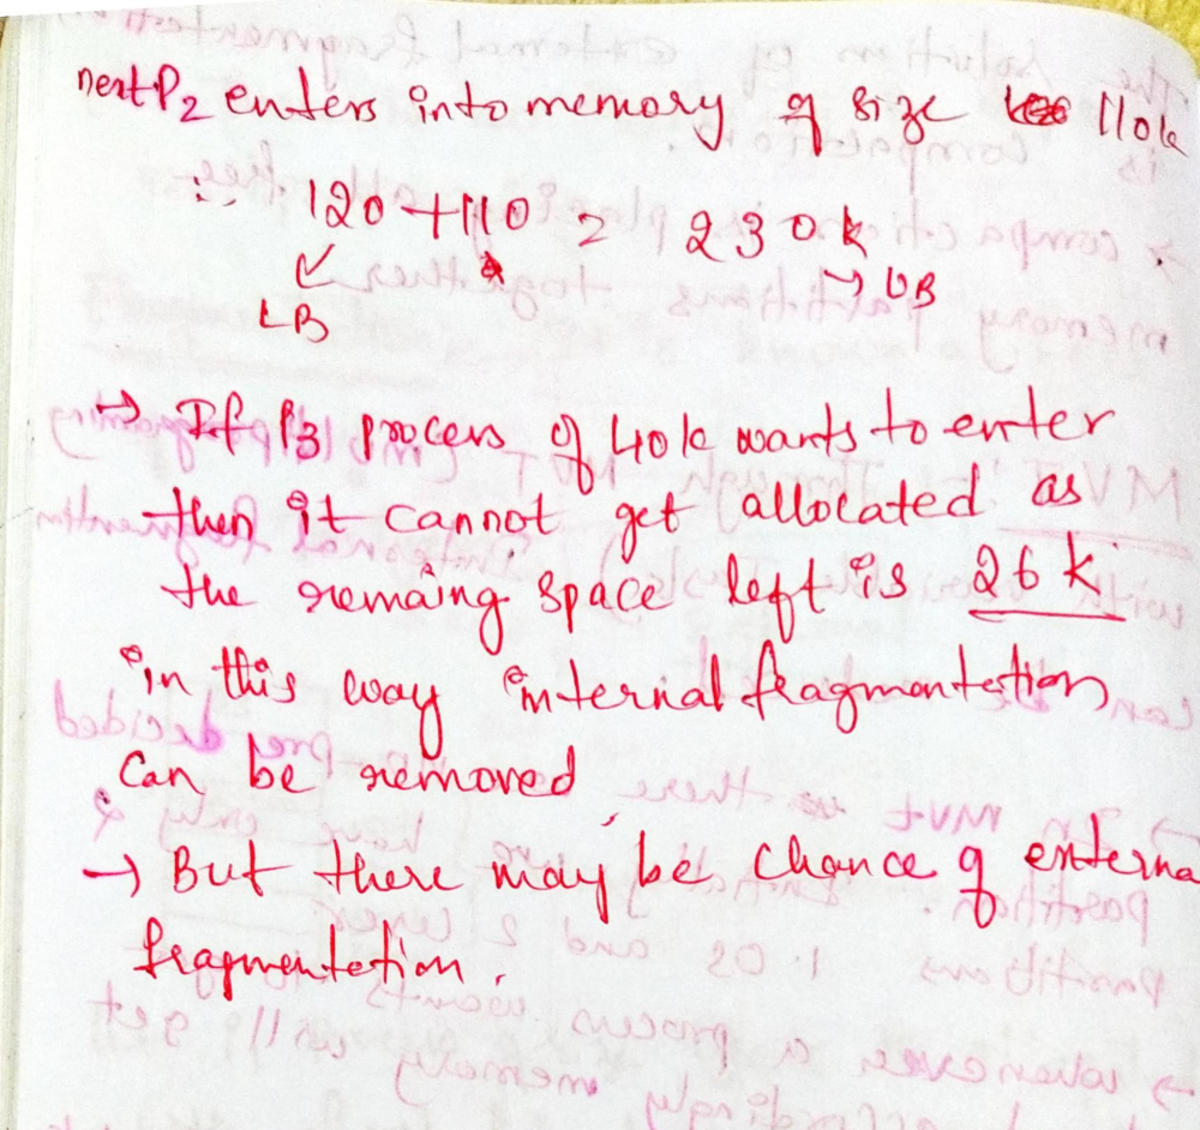 next P2 enters into memory of size 110k
∴ 120 + 110 = 230k
LB
UB
→ If P3 process of 40k wants to enter
then it cannot get allocated as
the remaing space left is 26k
in this way internal fragmentation
can be removed
→ But there may be chance of externa
fragmentation.